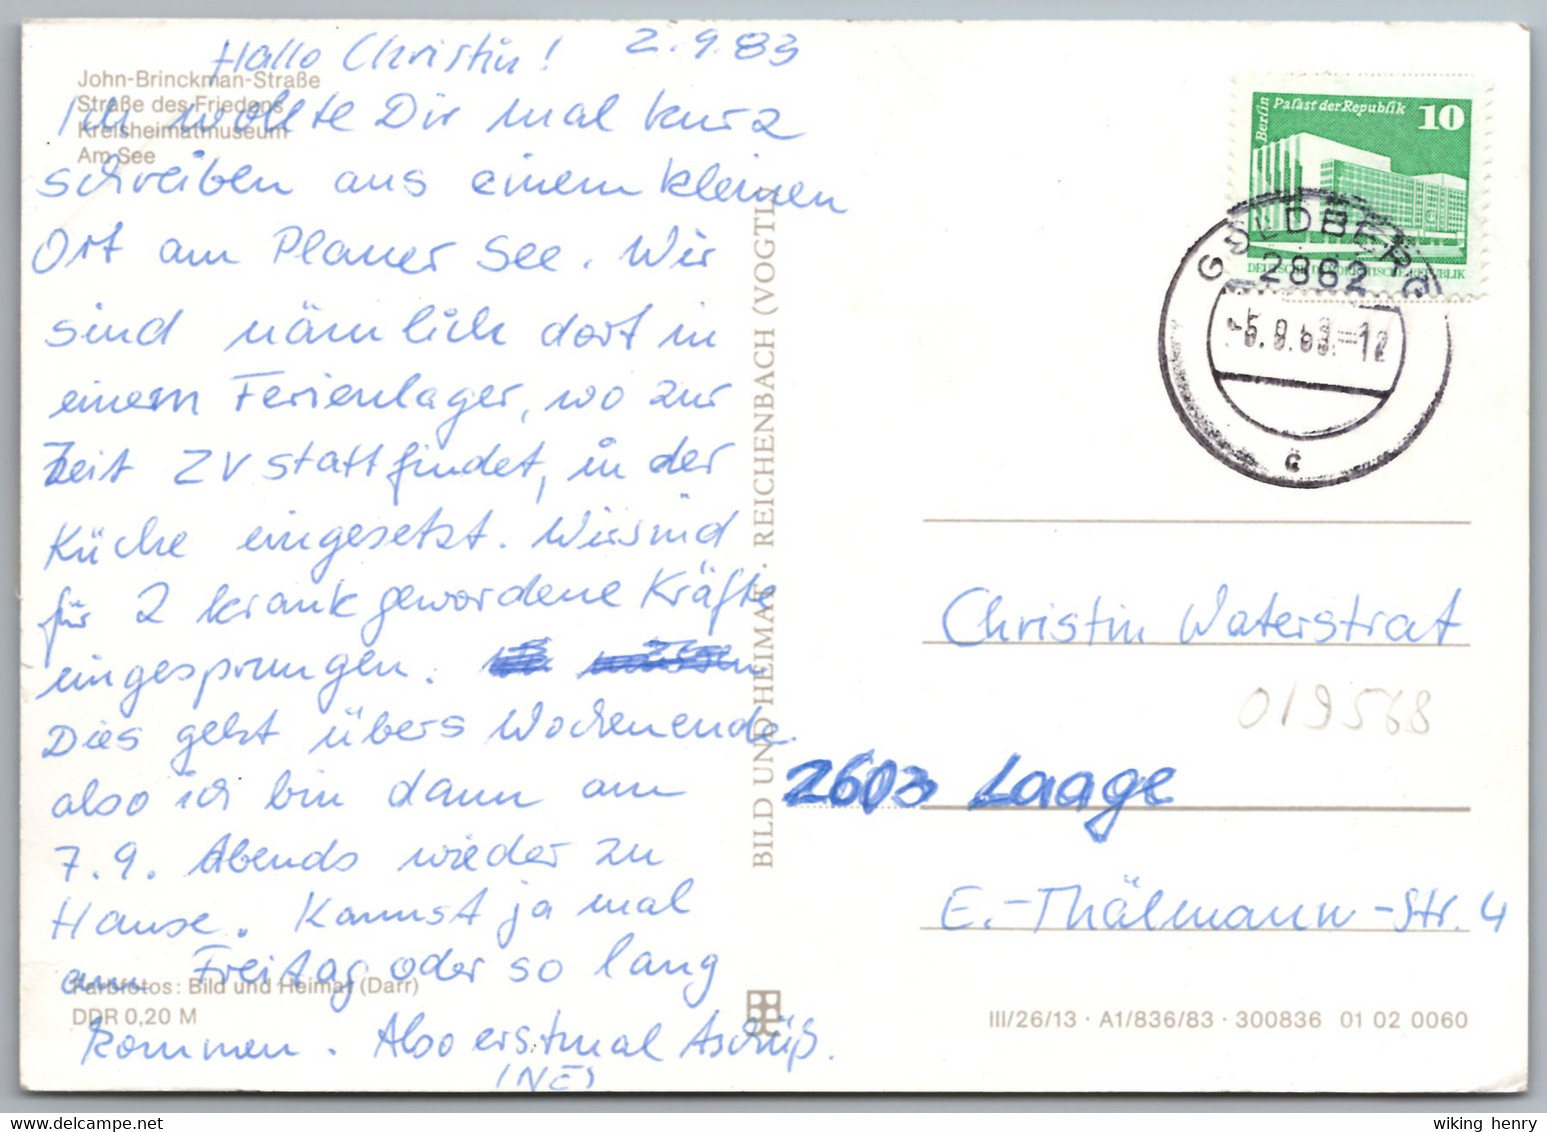 Hallo Christin! 2.9.83
John-Brinckman-Straße
Straße des Friedens
Kreisheimatmuseum
Am See
Ich wollte Dir mal kurz
schreiben aus einem kleinen
Ort am Plauer See. Wir
sind nämlich dort in
einem Ferienlager, wo zur
Zeit ZV stattfindet, in der
Küche eingesetzt. Wir sind
für 2 krank gewordene Kräfte
eingesprungen.
Dies geht übers Wochenende.
also ich bin dann am
7.9. Abends wieder zu
Hause. Kannst ja mal
am Freitag oder so lang
kommen. Also erstmal Tschüß.
Farbfotos: Bild und Heimat (Darr)
DDR 0,20 M
BILD UND HEIMAT · REICHENBACH (VOGTL)
Berlin Palast der Republik 10
DEUTSCHE DEMOKRATISCHE REPUBLIK
GOLDBERG
2862
Christin Waterstrat
019568
2603 Laage
E.-Thälmann-Str. 4
III/26/13 · A1/836/83 · 300836 01 02 0060
wiking henry